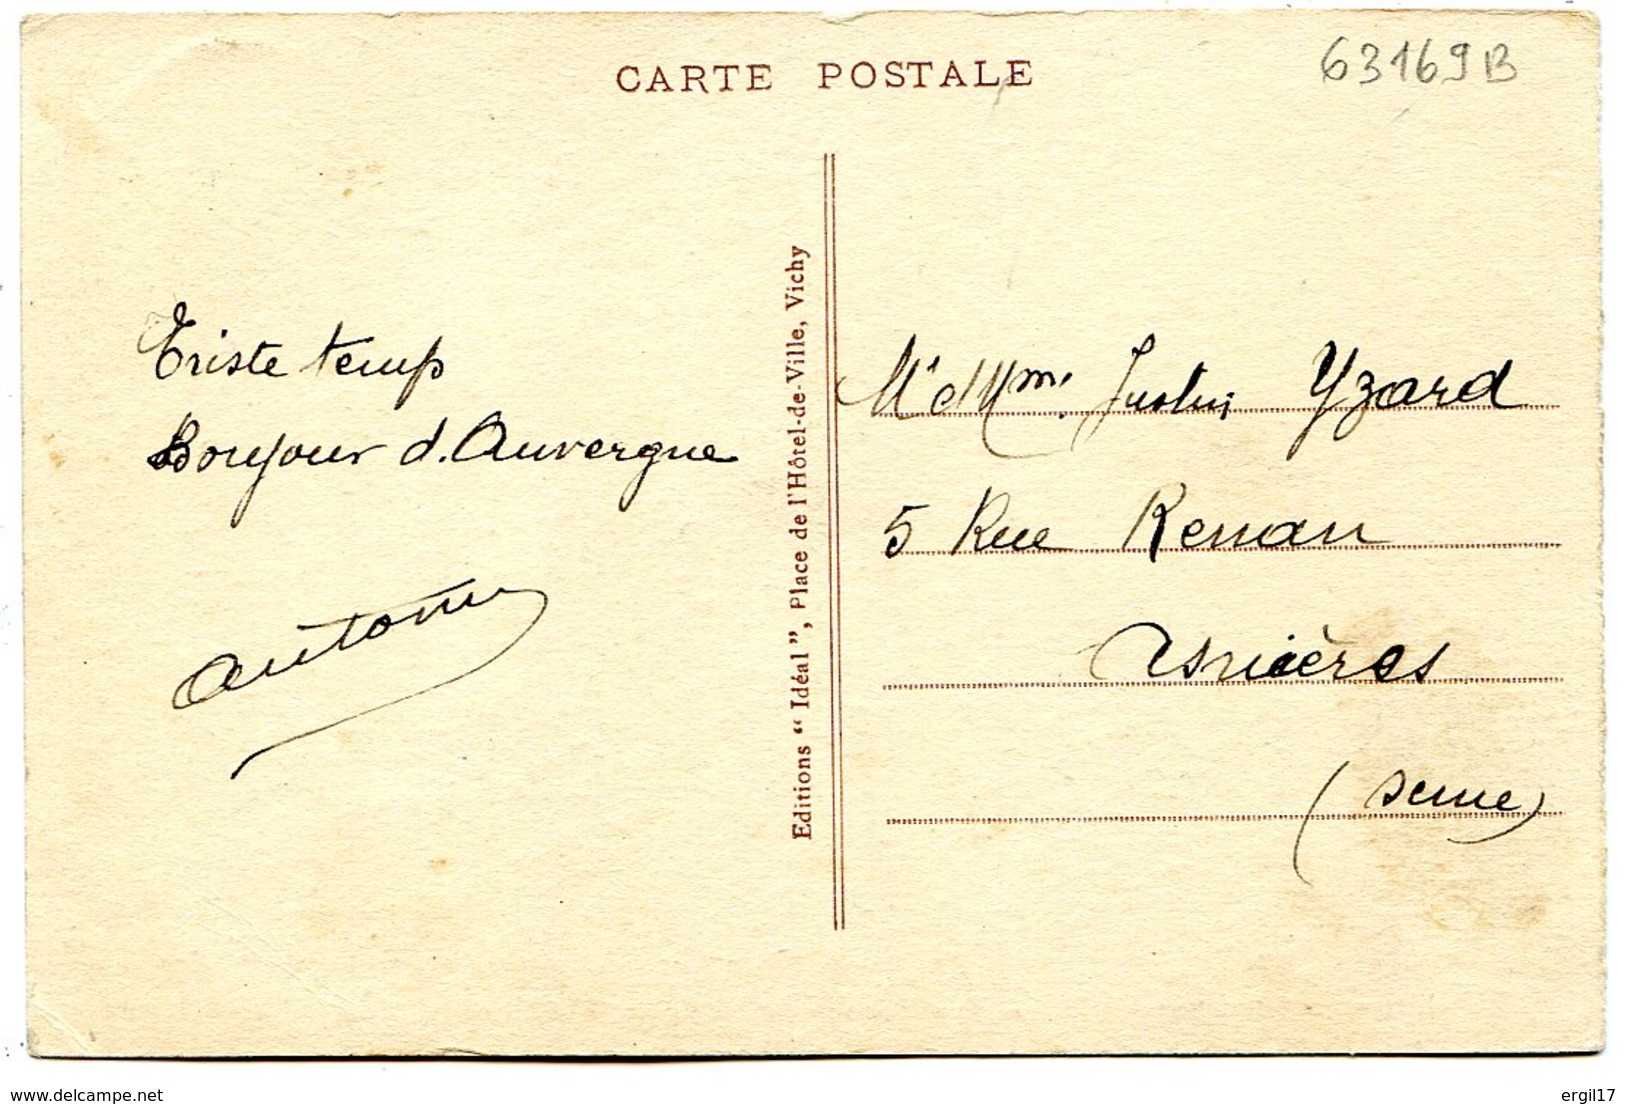 CARTE POSTALE
63169B
Triste temp
Bonjour d'Auvergne
Antony
Editions “ Idéal ”, Place de l'Hôtel-de-Ville, Vichy
Mr et Mme Justin Yzard
5 Rue Renan
Asnières
(Seine)
www.delcampe.net
ergil17